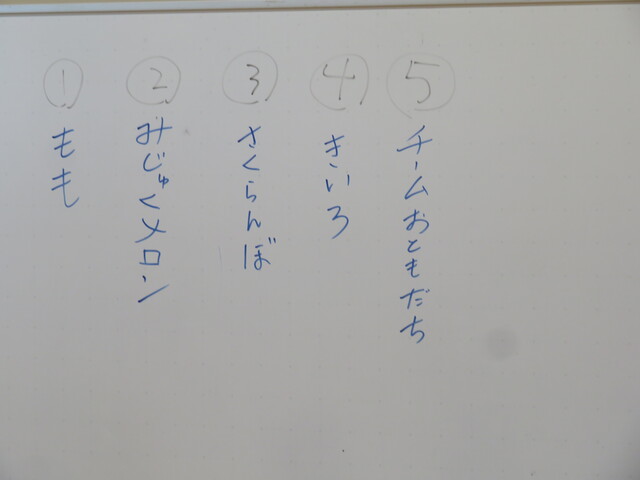 ①
もも
②
みじゅくメロン
③
さくらんぼ
④
きいろ
⑤
チームおともだち